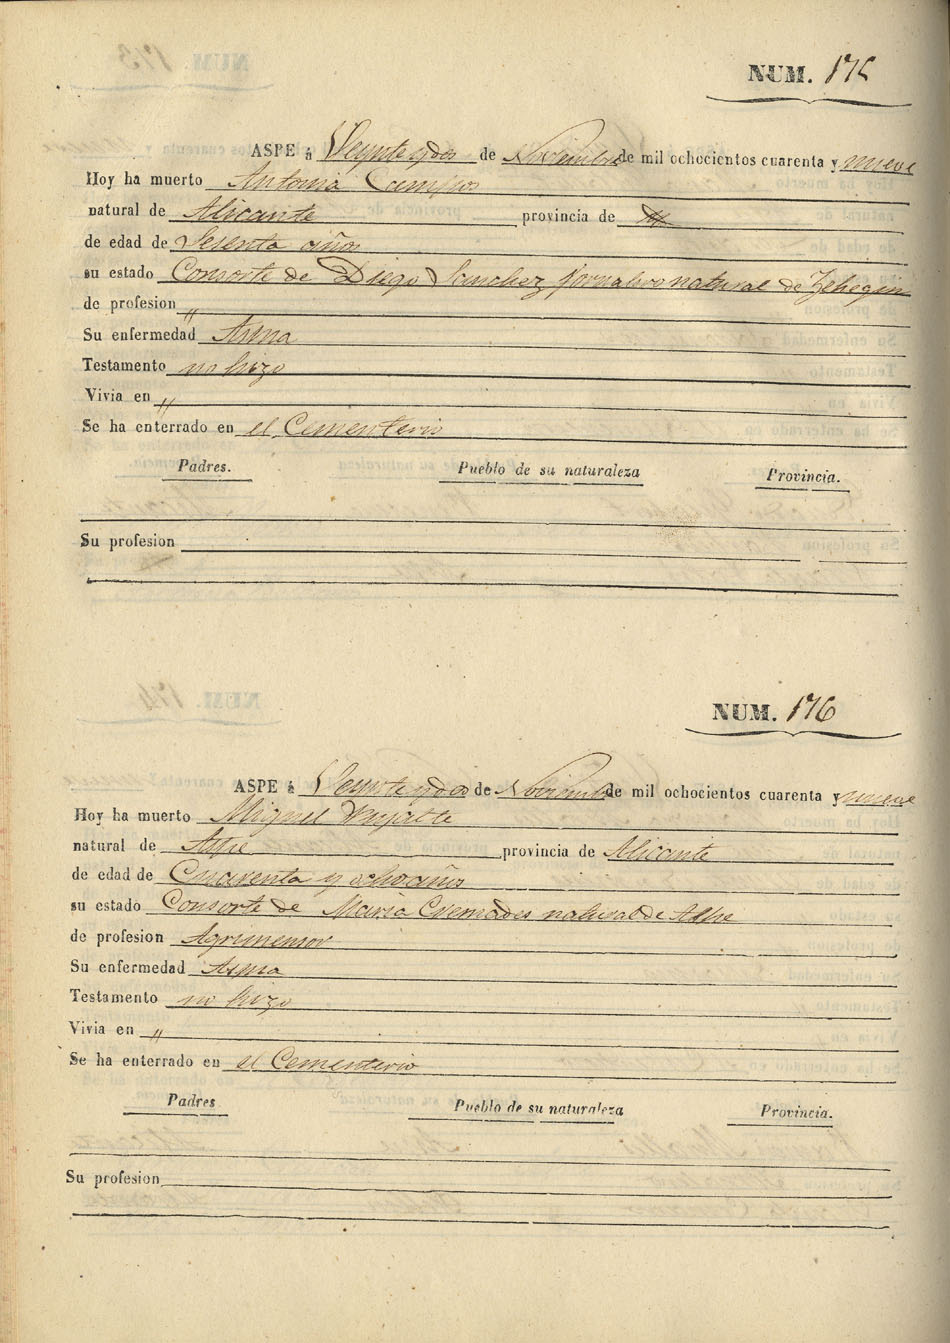 NUM. 175
ASPE á Veynte y dos de Noviembre de mil ochocientos cuarenta y nueve
Hoy ha muerto Antonia Campos
natural de Alicante provincia de
de edad de Sesenta años
su estado Consorte de Diego Sanchez jornalero natural de Zehegin
de profesion "
Su enfermedad Asma
Testamento no hizo
Vivia en "
Se ha enterrado en el Cementerio
Padres. Pueblo de su naturaleza Provincia.
Su profesion
NUM. 176
ASPE á Veynte y dos de Noviembre de mil ochocientos cuarenta y nueve
Hoy ha muerto Miguel
natural de Aspe provincia de Alicante
de edad de Cuarenta y ocho años
su estado Consorte de Maria Cremades natural de Aspe
de profesion Agrimensor
Su enfermedad Asma
Testamento no hizo
Vivia en "
Se ha enterrado en el Cementerio
Padres. Pueblo de su naturaleza Provincia.
Su profesion